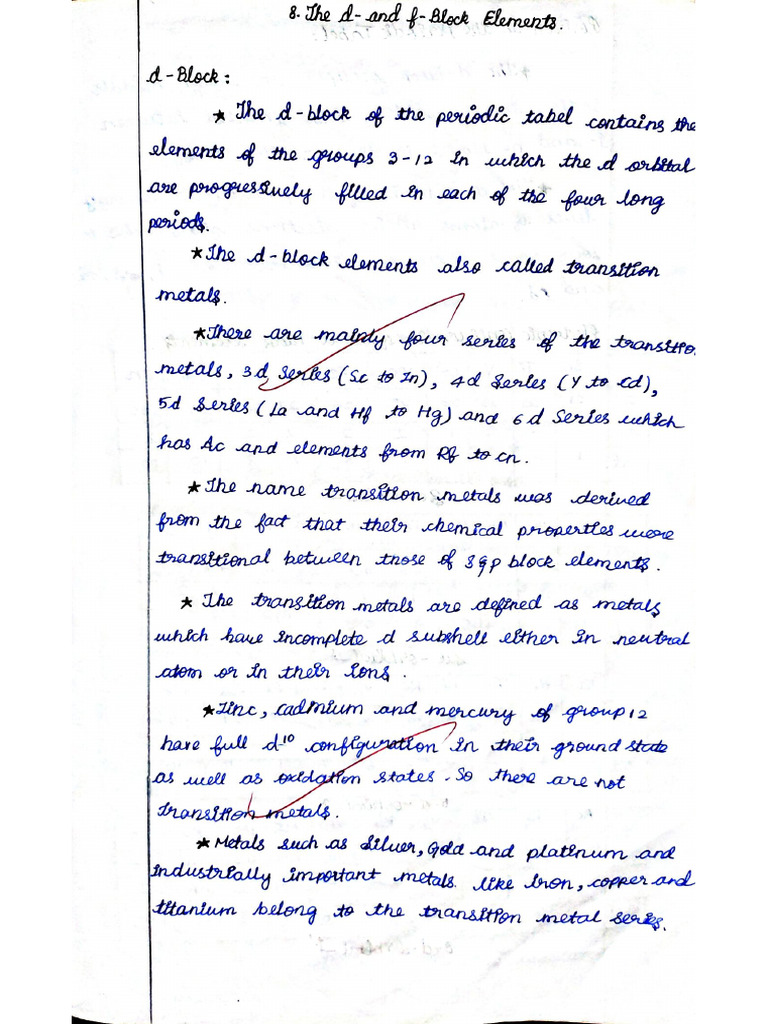 8. The d- and f-Block Elements.
d-Block:
★ The d-block of the periodic tabel contains the
elements of the groups 3-12 in which the d orbital
are progressively filled in each of the four long
periods.
★ The d-block elements also called transition
metals.
★ There are mainly four series of the transitio
metals, 3d series (Sc to Zn), 4d Series (Y to Cd),
5d Series (La and Hf to Hg) and 6d Series which
has Ac and elements from Rf to cn.
★ The name transition metals was derived
from the fact that their chemical properties were
transitional between those of s & p block elements.
★ The transition metals are defined as metals
which have incomplete d subshell either in neutral
atom or in their ions.
★ Zinc, cadmium and mercury of group 12
have full d¹⁰ configuration in their ground state
as well as oxidation states. So there are not
transition metals.
★ Metals such as Silver, Gold and platinum and
industrially important metals. like iron, copper and
titanium belong to the transition metal series.